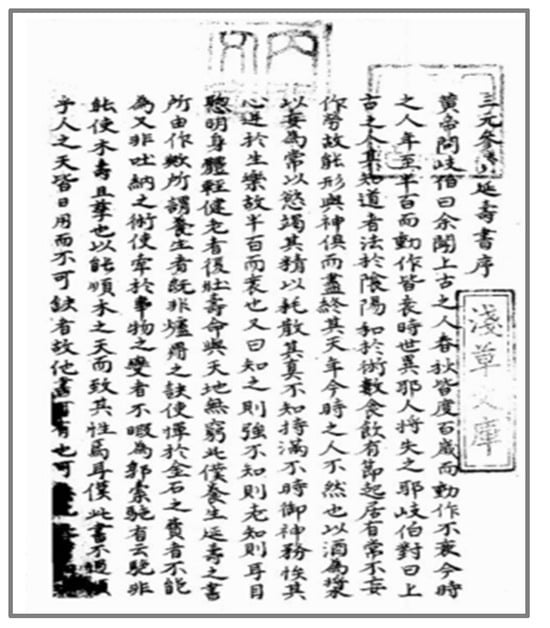 三元參贊延壽書序
黃帝問岐伯曰余聞上古之人春秋皆度百歲而動作不衰今時
之人年至半百而動作皆衰時世異耶人將失之耶岐伯對曰上
古之人其知道者法於陰陽和於術數食飲有節起居有常不妄
作勞故能形與神俱而盡終其天年今時之人不然也以酒為漿
以妄為常以慾竭其精以耗散其真不知持滿不時御神務快其
心逆於生樂故半百而衰也又曰知之則強不知則老知則耳目
聰明身體輕健老者復壯壽命與天地無窮此僕養生延壽之書
所由作歟所謂養生者既非爐鼎之訣使憚於金石之費者不能
為又非吐納之術使牽於事物之變者不暇為郭橐駝有云駝非
能使木壽且孳也以能順木之天而致其性焉耳僕此書不過順
乎人之天皆日用而不可缺者故他書可有也可
淺草文庫